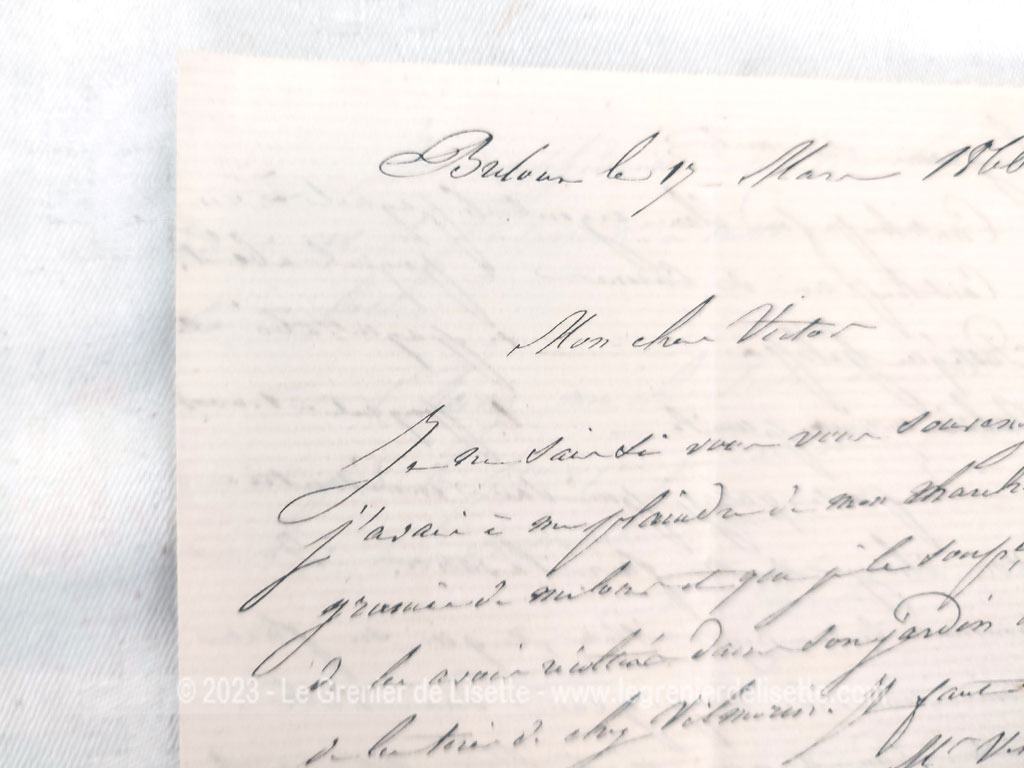 le 17 Mars 1866
Mon cher Victor
Je ne sais si vous vous souvenez
j'avais à me plaindre de mon march
graines de melons et que je le soup
de les avoir récolté dans son jardin
de les tirer de chez Vilmorin. Il faut
Mr V
© 2023 - Le Grenier de Lisette - www.legrenierdelisette.com